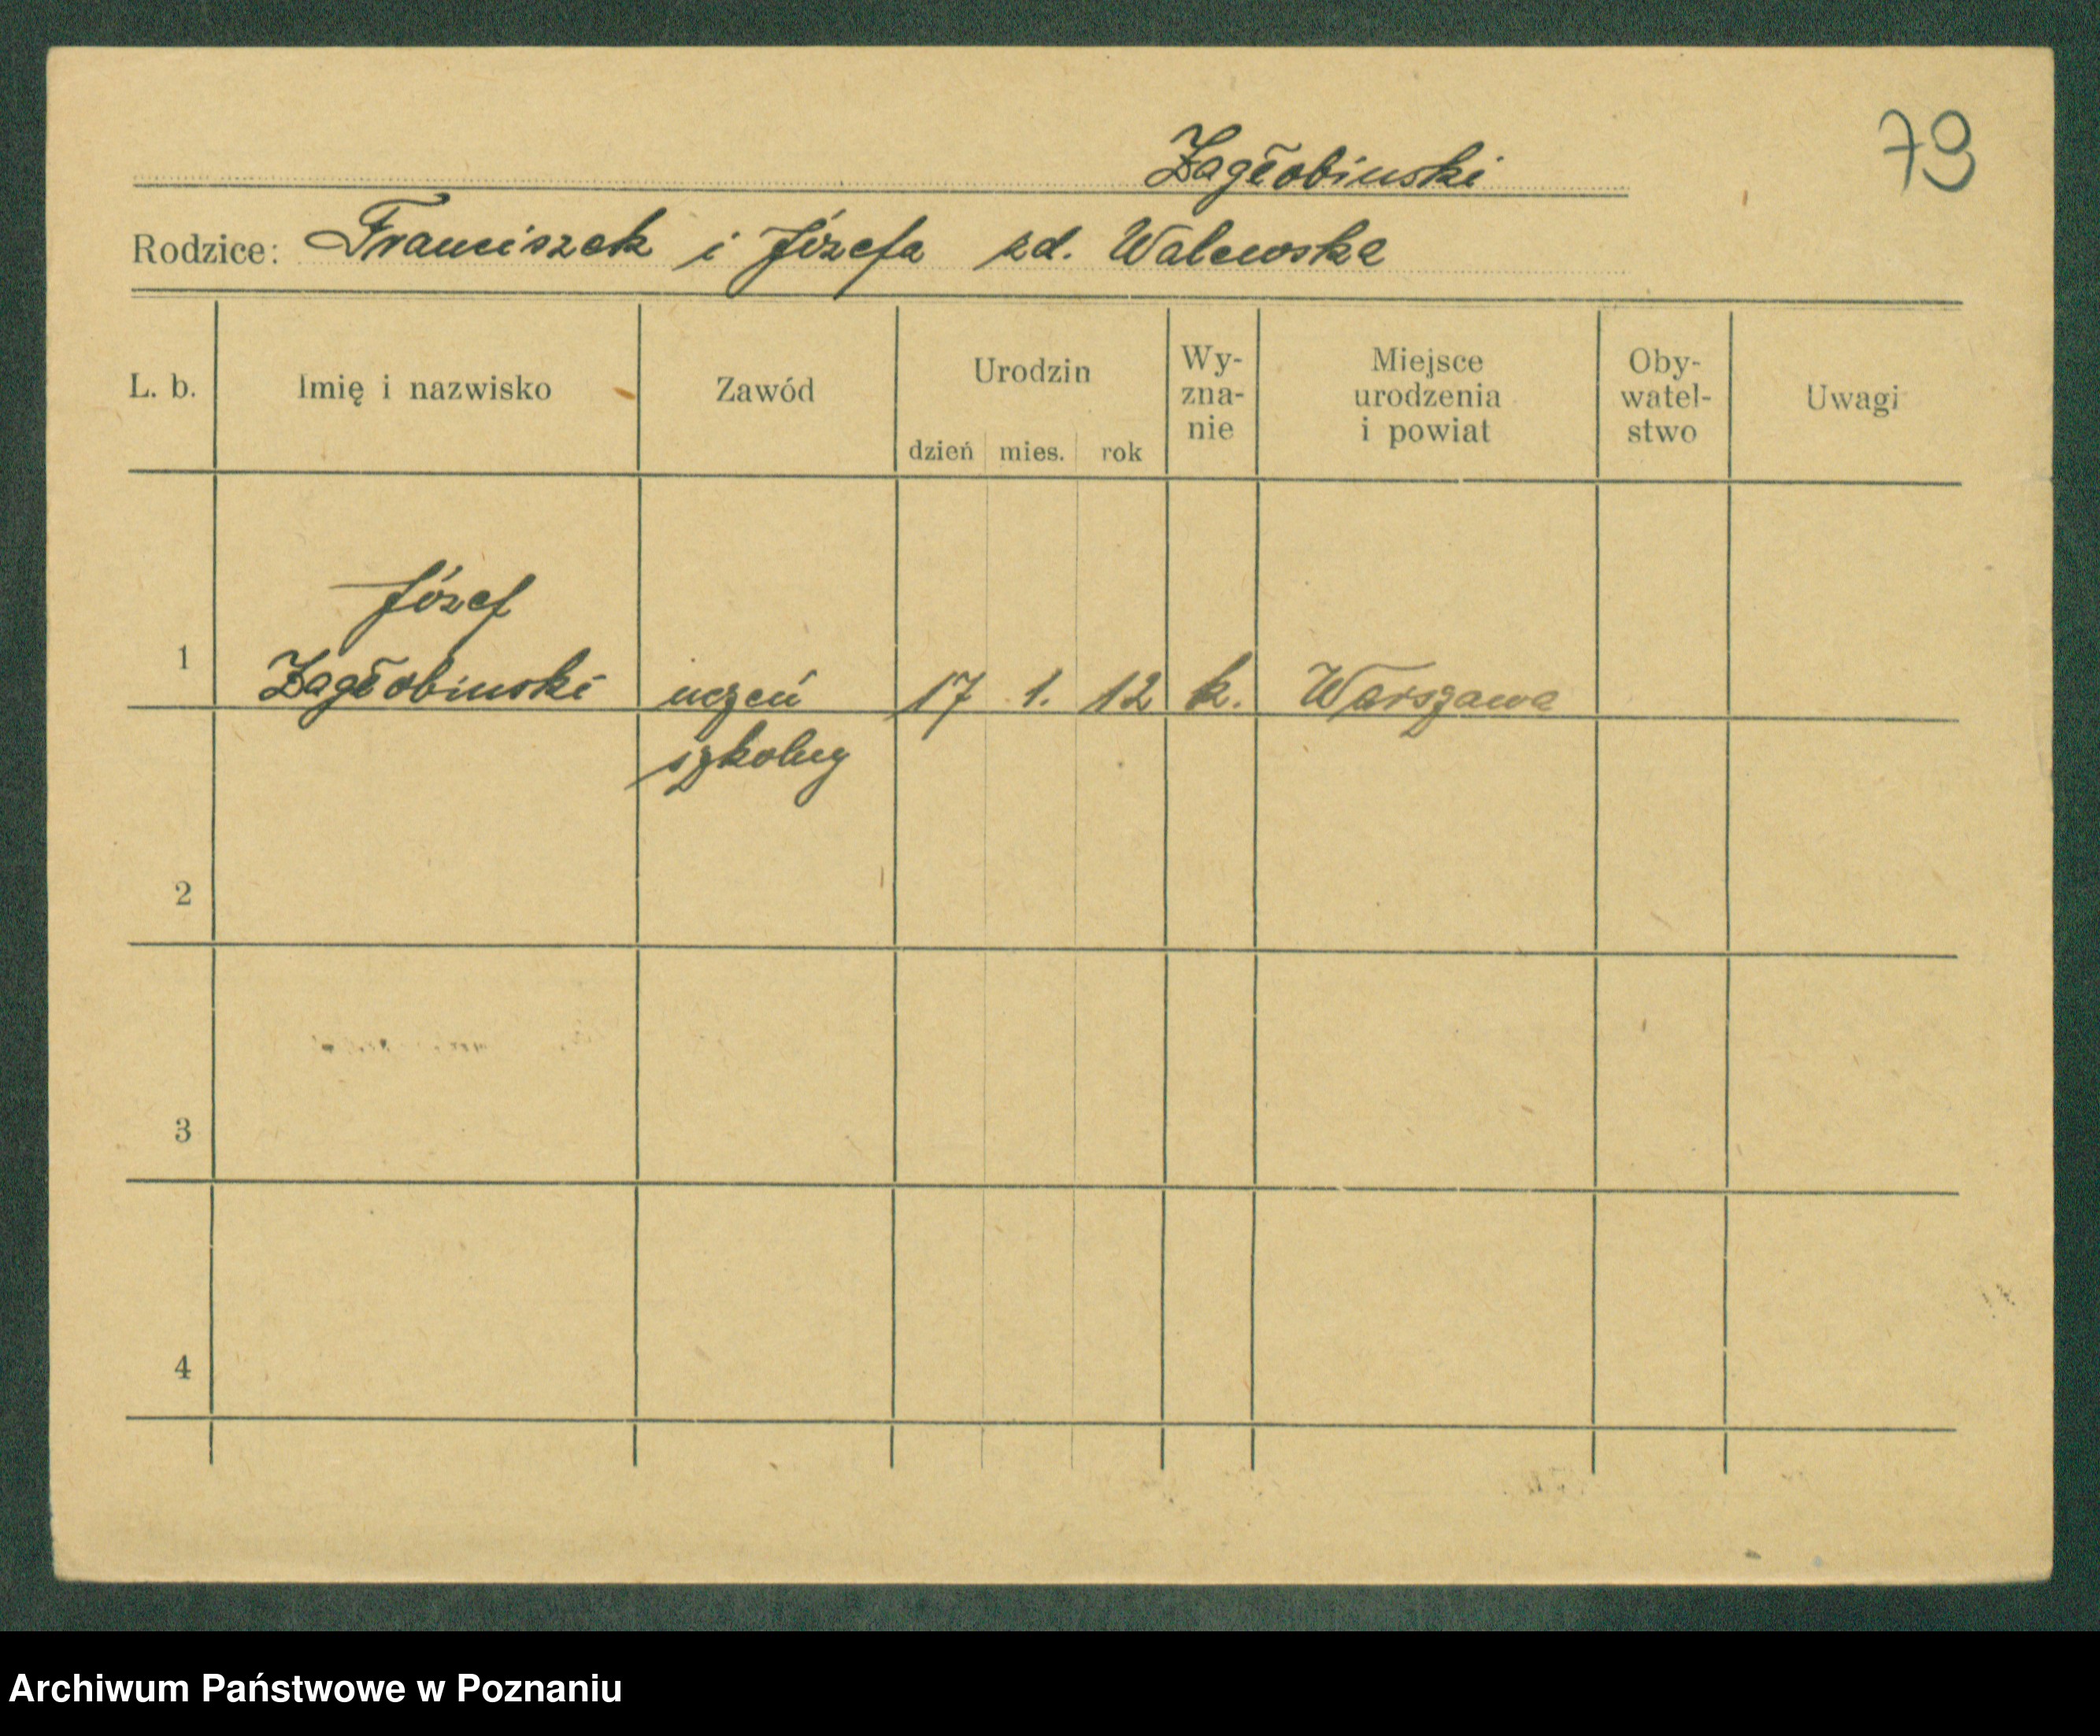 79
Zagłobinski
Rodzice: Franciszek i Józefa zd. Walewska
L. b. Imię i nazwisko Zawód Urodzin dzień mies. rok Wy-zna-nie Miejsce urodzenia i powiat Oby-watel-stwo Uwagi
Józef
1 Zagłobinski uczeń 17 1. 12 k. Warszawa
szkolny
2
3
4
Archiwum Państwowe w Poznaniu